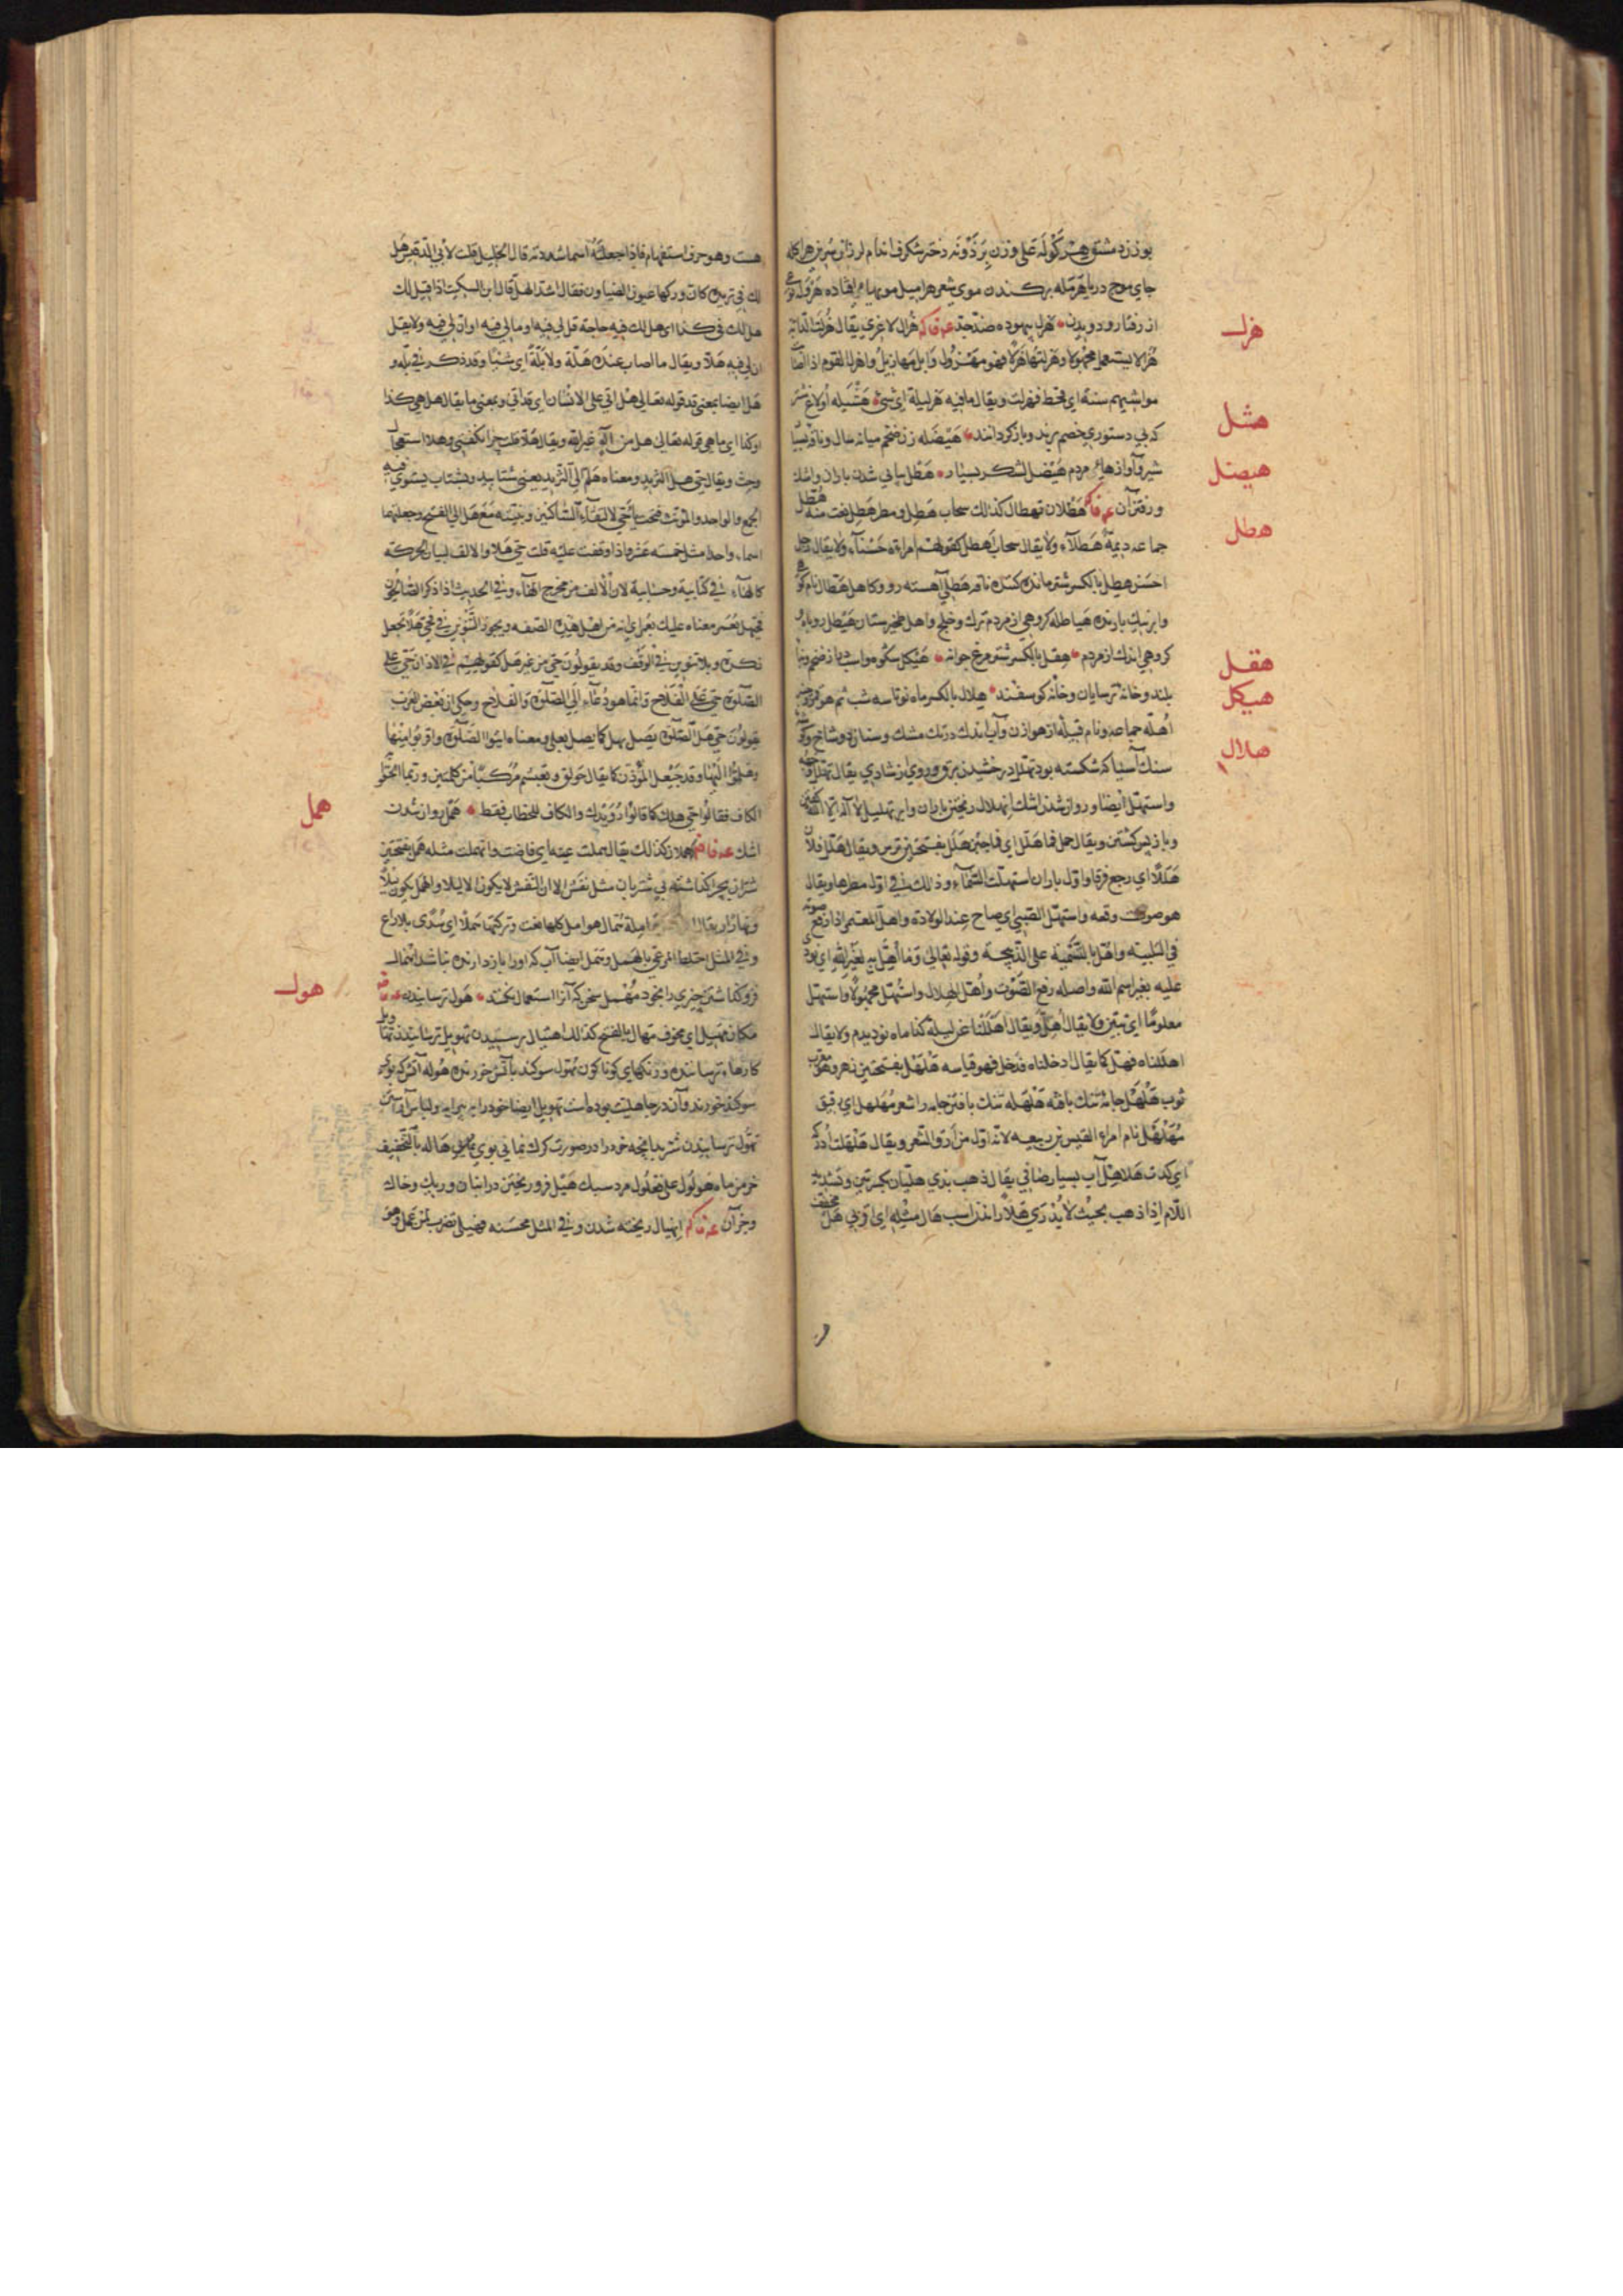 بوزند مشتق هِرْكَوْلَة على وزن بِرْذَوْنَه دختر شكرف اندام لرزان سرين هراكله
جاى موج دريا هرمله بركندن موى شعر هراميل مويها فرو افتاده هرولة نوعى
از رفتار ودويدن هزل بيهوده ضدّ جدّ هزال لاغرى يقال هُزِلَتِ الدّابّة
هزل
هُزالا يستعمل مجهولا وهزلتها هزلا فهو مهزول وابل مهازيل واهزل القوم اذا
مواشيهم سنة اى قحط فهزلت ويقال ما فيه هزليلة اى شئ هثيله
هثل
كه بى دستورى خصم برند وباز كردانند هيضله زن ضخم ميانه سال وناقه بسيار
شير وآوازهاى مردم هيضل لشكر بسيار هطل پياپى شدن باران واشك
هيضل
ورفتن آن هطلان تهطال كذلك سحاب هطل ومطر هطل نعت منه هطل
هطل
جماعه ديمة هطلآء ولا يقال سحاب اهطل كقولهم امراة حسنآء ولا يقال رجل
احسن هطل بالكسر شتر مانده كشته ناقه هطلى آهسته رو وكاهل هطال نام كوهى
وابر نيك بارنده هياطله كروهى از مردم ترك وخلج واهل طخيرستان هيطل روباه و
كروهى اندك از مردم هقل بالكسر شتر مرغ جوانه هيكل شكوه واسب دراز ضخم وبنا
هقل
هيكل
بلند وخانه ترسايان وخانه كوسفند هلال بالكسر ماه نو تا سه شب ثم هو قمر
اهلّه جماعه ونام قبيله از هوازن وآب اندك در تك مشك وسنان دو شاخ
هلال
سنك آسيا كه شكسته بود تهلل درخشيدن برق وروى از شادى يقال تهلل وجهه
واستهلّ ايضا وروان شدن اشك انهلال ريختن باران وابر تهليل لا اله الا الله گفتن
وباز پس كشتن ويقال حمل فما هلّل اى فما جبن هلل بفتحتين ترس ويقال هلك فلان
هللًا اى رجع فرقا واول باران استهلت السّمآء وذلك فى اوّل مطرها ويقال
هو صوت وقعه واستهلّ الصّبىّ اى صاح عند الولادة واهلّ المعتمر اذا رفع صوته
فى التلبية واهلّ بالتّسمية على الذّبيحة وقوله تعالى وما اهلّ به لغير الله اى نودى
عليه بغير اسم الله واصله رفع الصّوت واهلّ الهلال واستهلّ مجهولا واستهلّ
معلوما اى تبيّن ولا يقال اهلّ ويقال اهللنا عن ليلة كذا ماه نو ديديم ولا يقال
اهللناه فهلّ كما يقال دخلناه فدخل فهو قياسه هلهل بفتحتين زهر وهو معرب
ثوب هلهل جامه تنك بافته هلهله تنك بافتن جامه را شعر مهلهل اى رقيق
مهلهل نام امراء القيس بن ربيعه لانّه اوّل من ارقّ الشعر ويقال هلهلت ادركه
اى كدت هلاهل آب بسيار صافى يقال ذهب بذى هلّيان بكسرتين وتشديد
اللّام اذا ذهب بحيث لا يُدْرَى هلا راندن اسب هال مثله اى اوبى هل مخفف
هست وهو حرف استفهام فاذا جعلته اسما شددته قال الخليل قلت لابى الدّقيش هل
لك فى ثريدة كانّ وركها عيون الضياون فقال اشدّ الهلّ قال ابن السكيت اذا قيل لك
هل لك فى كذا اى هل لك فيه حاجة قل لى فيه او ما لى فيه او انّ لى فيه ولا يقل
ان لى فيه هلّا ويقال ما اصاب عنده هلّة ولا بلّة اى شيئا وقد ذكر فى بلّه و
هل ايضا بمعنى قد قوله تعالى هل اتى على الانسان اى قد اتى وبمعنى ما يقال هل هى كذا
او كذا اى ما هى قوله تعالى هل من اله غير الله ويقال هلّا وهلا استعجال
وحثّ ويقال حىّ هل الثّريد ومعناه هلمّ الى الثّريد يعنى شتابيد وبشتاب يستوى فيه
الجمع والواحد والمؤنث فتحت يا حىّ لالتقآء السّاكنين وبنيته مع هل الى الفتح وجعلتهما
اسما واحدا مثل خمسة عشر واذا وقفت عليه قلت حىّ هلا والالف لبيان الحركة
كالهآء فى كتابيه وحسابيه لان الالف من مخرج الهآء وفى الحديث اذا ذكر الصّالحون
فحيّهل بعمر معناه عليك بعمر اى انه من اهل هذه الصفة ويجوز التّنوين فى حىّ هلا تجعل
نكرة وبلا تنوين فى الوقف وقد يقولون حىّ من غير هل كقولهم فى الاذان حىّ على
الصّلوة حىّ على الفلاح وانّما هو دعآء الى الصّلوة والفلاح وحكى ان بعض العرب
يقولون حىّ هل الصّلوة يصل بهل كما يصل بعلى ومعناه ايتوا الصّلوة واقربوا منها
وهلمّوا اليها وقد جيعل المؤذّن كما يقال حولق وتعبشم مركّبا من كلمتين وربّما الحقوا
الكاف فقالوا حىّ هلك كما قالوا رويدك والكاف للخطاب فقط همل روان شدن
همل
اشك هملان كذلك يقال هملت عينه اى فاضت وانهملت مثله همل بفتحتين
شتران بچرا كذاشته بى شتربان مثل نفش الا ان النّفش لا يكون الا ليلا والهمل يكون ليلا
ونهارا يقال هوامل كلها نعت وتركتها هملا اى سدى بلا راع
وفى المثل اختلط المرعى بالهمل وهمل ايضا آب كه او را باز دارنده نباشد اهمال
فرو كذاشتن چيزى را بخود مهمل سخن كه آنرا استعمال نكنند هول ترسانيدن
هول
مكان مهيل اى مخوف مهال بالفتح كذلك اهتيال ترسيدن تهويل ترسانيدن تهاويل
كارهاء ترساننده ورنكهاى كوناكون تهوّل سوكند بآتش خورنده هوله آتش كه بوى
سوكند خورند وآن در جاهليت بوده است تهويل ايضا خود را بپيرايه ولباس آراستن
تهوّل ترسانيدن شتر بدانچه خود را در صورت كرك نمايى بوى هاله بالتّخفيف
خرمن ماه هولول على فعلول مرد سبك هيل فرو ريختن در انبان وريك وخاك
وجز آن انهيال ريخته شدن وفى المثل محسنه فهيلى تضرب لمن عمل